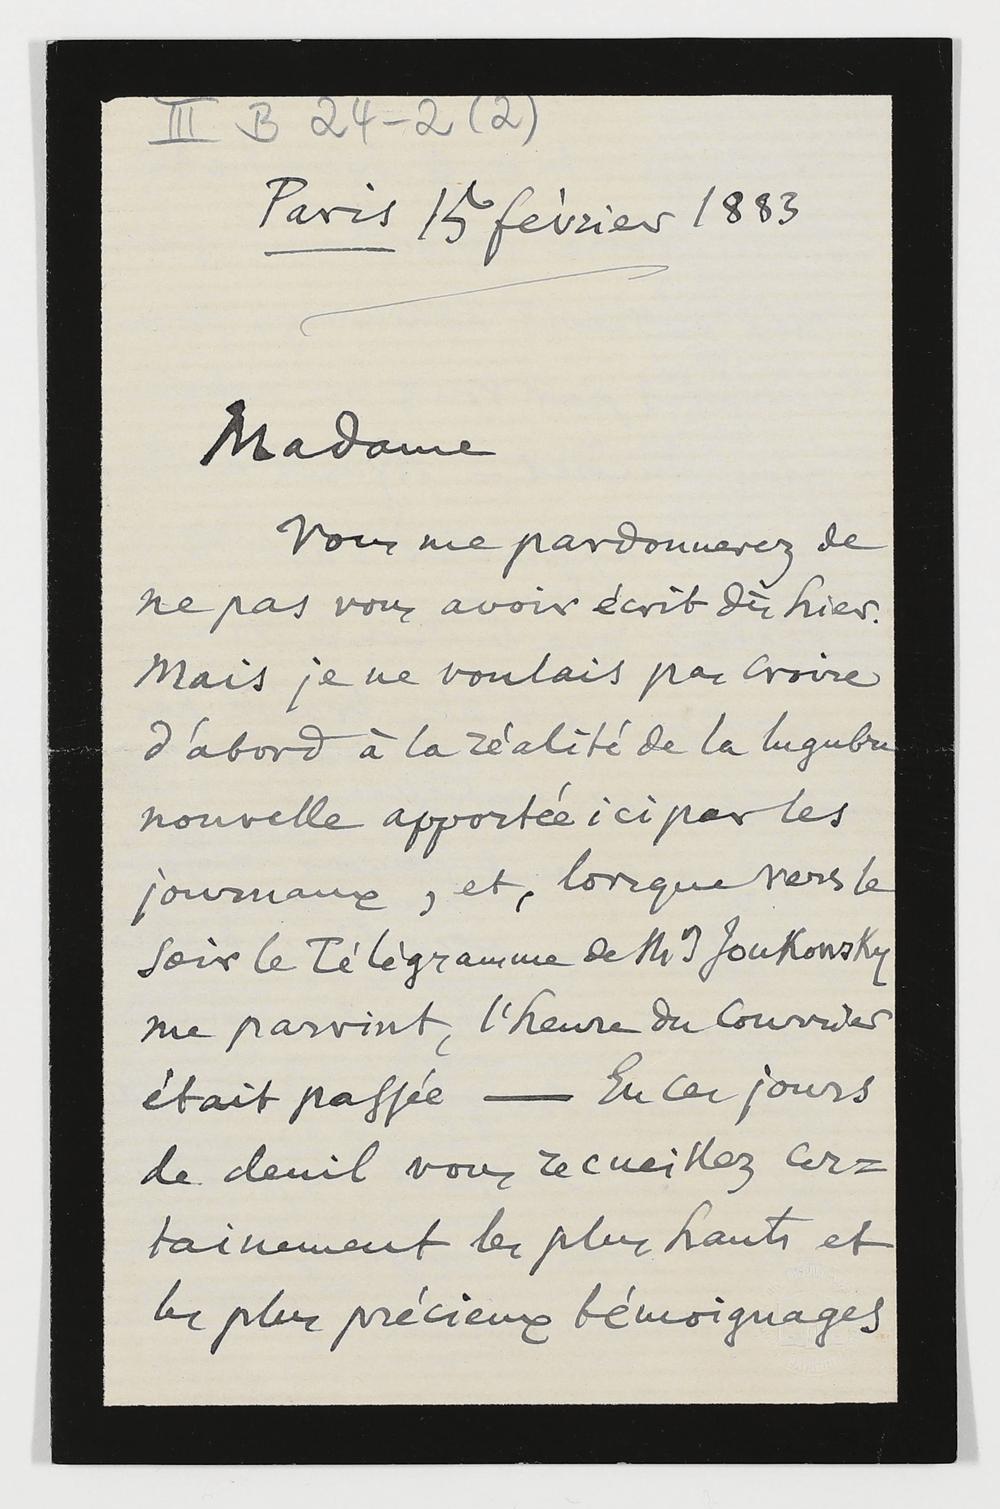 III B 24-2 (2)
Paris 15 février 1883
Madame
Vous me pardonnerez de
ne pas vous avoir écrit dès hier.
Mais je ne voulais pas croire
d'abord à la réalité de la lugubre
nouvelle apportée ici par les
journaux, et, lorsque vers le
soir le Télégramme de Mr Joukowsky
me parvint, l'heure du Courrier
était passée — En ces jours
de deuil vous recueillez cer=
tainement les plus hauts et
les plus précieux témoignages